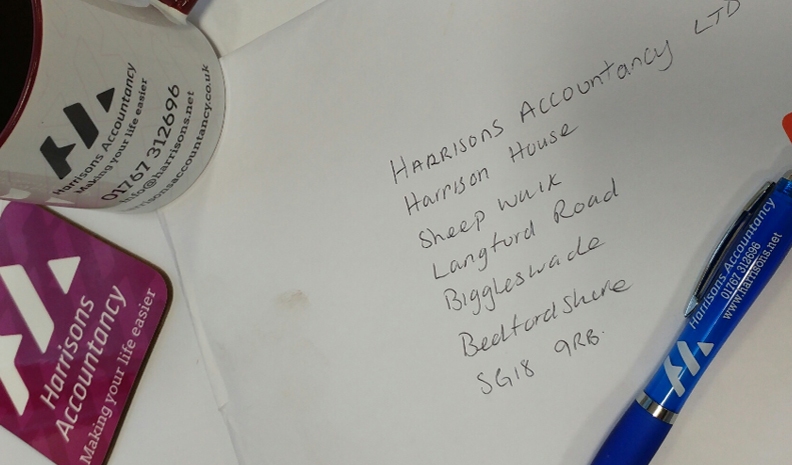 Harrisons Accountancy
Making your life easier
01767 312696
info@harrisons.net
harrisonsaccountancy.co.uk
HARRISONS ACCOUNTANCY LTD
Harrison House
Sheep Walk
Langford Road
Biggleswade
Bedfordshire
SG18 9RB.
Harrisons
Accountancy
Making your life easier
Harrisons Accountancy
01767 312696
www.harrisons.net